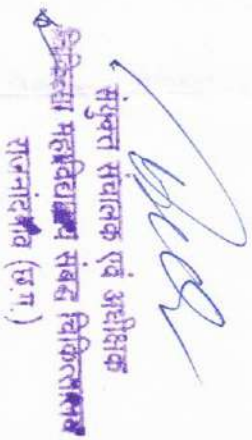 संयुक्त संचालक एवं अधीक्षक
चिकित्सा महाविद्यालय संबद्ध चिकित्सालय
राजनांदगांव (छ.ग.)